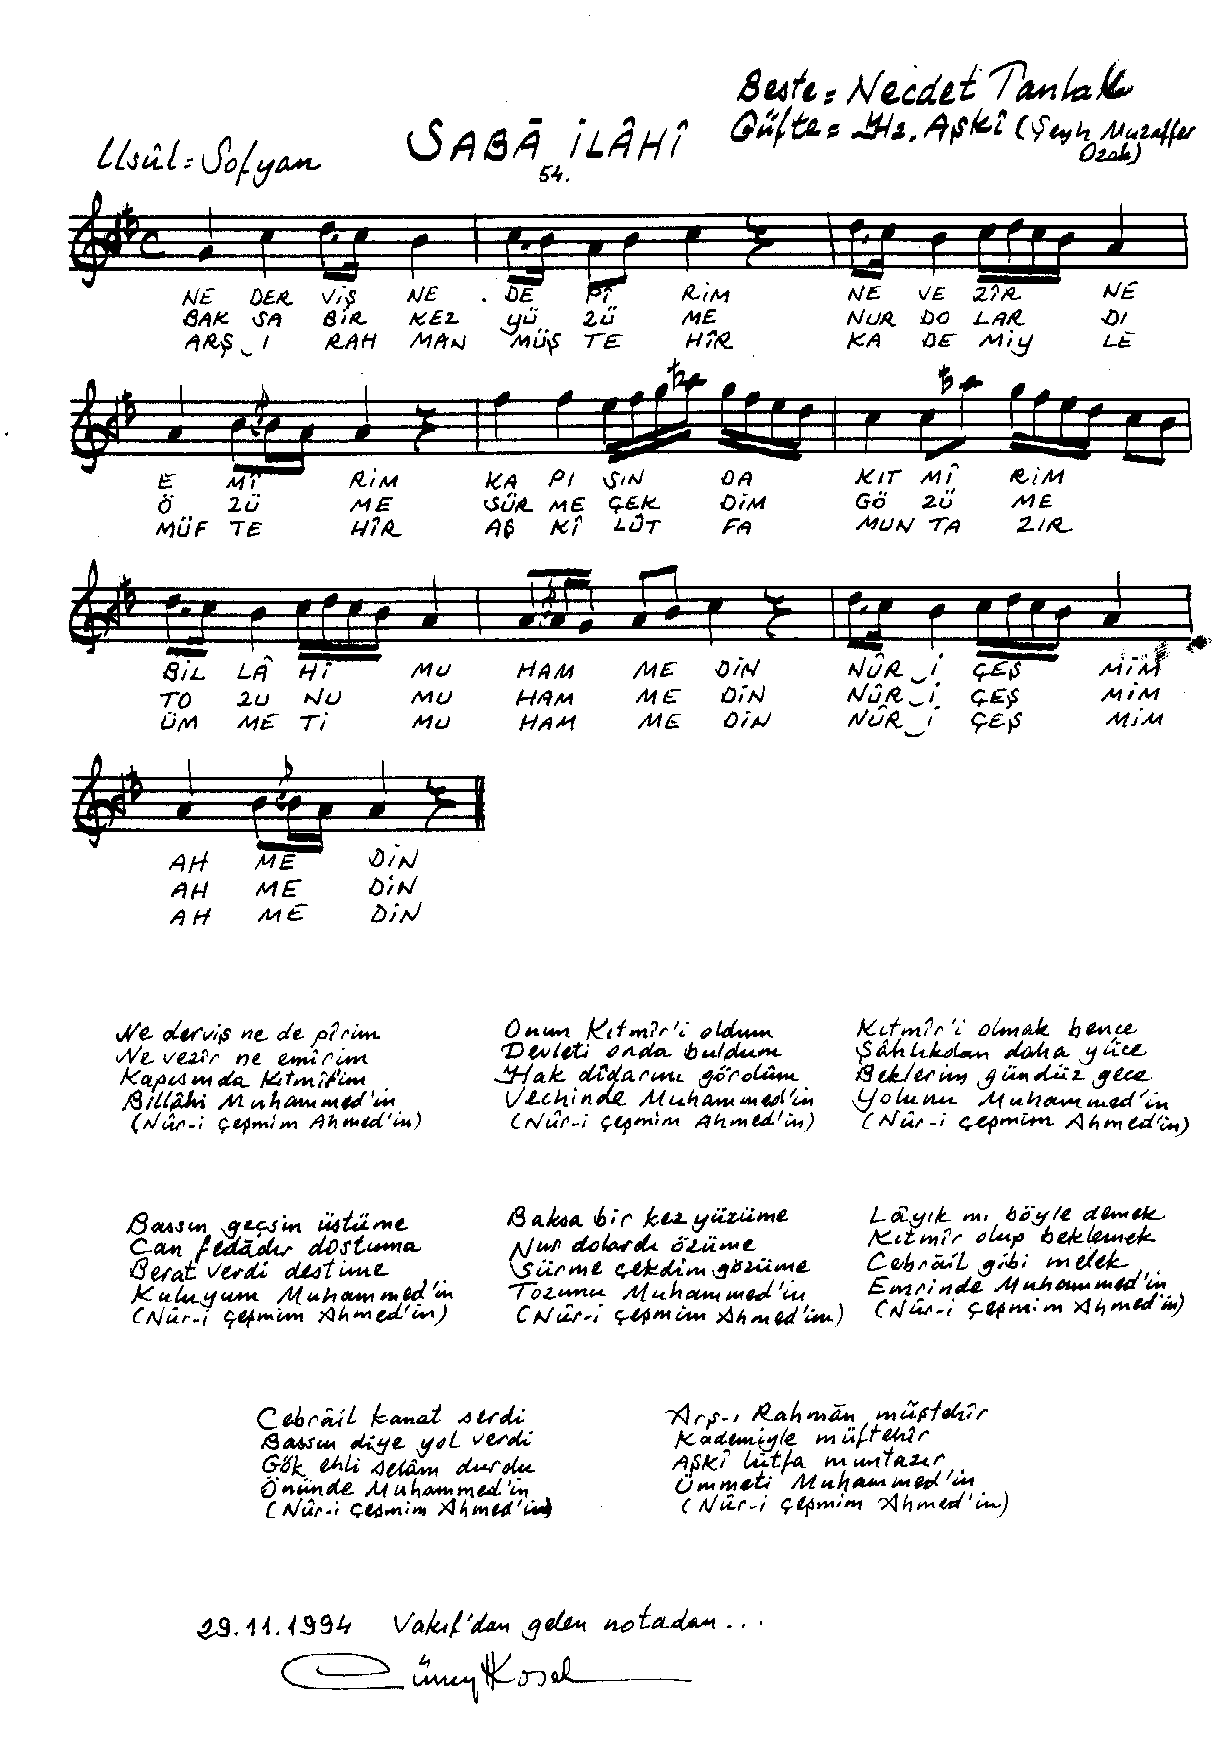 Beste = Necdet Tanlak
Güfte = Hz. Aşkî (Şeyh Muzaffer Ozak)
SABÂ İLÂHÎ
54.
Usûl = Sofyan
NE DER VİŞ NE . DE PÎ RİM NE VE ZÎR NE
BAK SA BİR KEZ YÜ ZÜ ME NUR DO LAR DI
ARŞ_I RAH MAN MÜŞ TE HÎR KA DE MİY LE
E MÎ RİM KA PI SIN DA KIT MÎ RİM
Ö ZÜ ME SÜR ME ÇEK DİM GÖ ZÜ ME
MÜF TE HÎR AŞ KÎ LÜT FA MUN TA ZIR
BİL LÂ HÎ MU HAM ME DİN NÛR_İ ÇEŞ MİM
TO ZU NU MU HAM ME DİN NÛR_İ ÇEŞ MİM
ÜM ME Tİ MU HAM ME DİN NÛR_İ ÇEŞ MİM
AH ME DİN
AH ME DİN
AH ME DİN
Ne derviş ne de pîrim
Ne vezîr ne emîrim
Kapısında Kıtmîr'im
Billâhi Muhammed'in
(Nûr-i çeşmim Ahmed'in)
Onun Kıtmîr'i oldum
Devleti onda buldum
Hak dîdarını gördüm
Vechinde Muhammed'in
(Nûr-i çeşmim Ahmed'in)
Kıtmîr'i olmak bence
Şâhlıkdan daha yüce
Beklerim gündüz gece
Yolunu Muhammed'in
(Nûr-i çeşmim Ahmed'in)
Bassın geçsin üstüme
Can fedâdır dostuma
Berat verdi destime
Kuluyum Muhammed'in
(Nûr-i çeşmim Ahmed'in)
Baksa bir kez yüzüme
Nur dolardı özüme
Sürme çekdim gözüme
Tozunu Muhammed'in
(Nûr-i çeşmim Ahmed'in)
Lâyık mı böyle demek
Kıtmîr olup beklemek
Cebrâil gibi melek
Emrinde Muhammed'in
(Nûr-i çeşmim Ahmed'in)
Cebrâil kanat serdi
Bassın diye yol verdi
Gök ehli selâm durdu
Önünde Muhammed'in
(Nûr-i çeşmim Ahmed'in)
Arş-ı Rahmân müştehîr
Kademiyle müftehîr
Aşkî lütfa muntazır
Ümmeti Muhammed'in
(Nûr-i çeşmim Ahmed'in)
29.11.1994 Vakıf'dan gelen notadan...
Güney Kosal